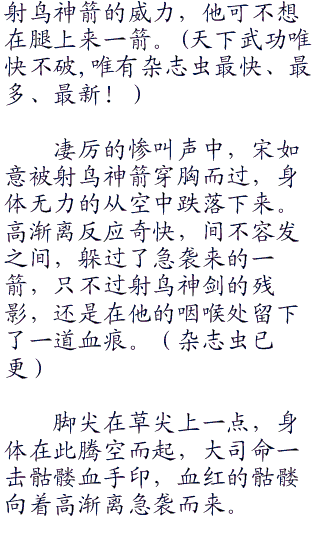 射鸟神箭的威力，他可不想
在腿上来一箭。(天下武功唯
快不破,唯有杂志虫最快、最
多、最新！）
凄厉的惨叫声中，宋如
意被射鸟神箭穿胸而过，身
体无力的从空中跌落下来。
高渐离反应奇快，间不容发
之间，躲过了急袭来的一
箭，只不过射鸟神剑的残
影，还是在他的咽喉处留下
了一道血痕。（杂志虫已
更）
脚尖在草尖上一点，身
体在此腾空而起，大司命一
击骷髅血手印，血红的骷髅
向着高渐离急袭而来。